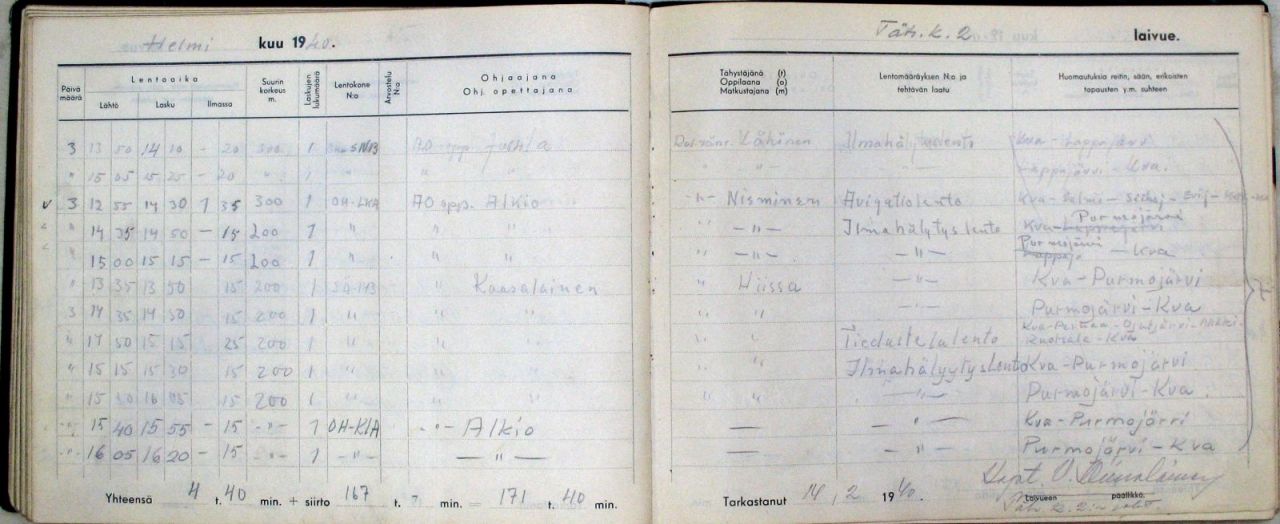 Helmi kuu 1940.
Päivä määrä Lentoaika Suurin korkeus m. Laskujen lukumäärä Lentokone N:o Arvostelu N:o Ohjaajana Ohj. opettajana
Lähtö Lasku Ilmassa
3 13 50 14 10 - 20 300 1 AO opp. Juhla
" 15 05 15 25 - 20 " 1 " " "
v 3 12 55 14 30 1 35 300 1 OH-LKA AO opp. Alkio
" 14 35 14 50 - 15 200 1 " " "
" 15 00 15 15 - 15 200 1 " " "
" 13 35 13 50 15 200 1 " Kaasalainen
3 14 35 14 50 15 200 1 " " "
" 14 50 15 15 25 200 1 " " "
" 15 15 15 30 15 200 1 " " "
" 15 50 16 05 15 200 1 " " "
" 15 40 15 55 - 15 -"- 1 OH-KLA -"- Alkio
" 16 05 16 20 - 15 -"- 1 -"- -"-
Yhteensä 4 t. 40 min. + siirto 167 t. min. = 171 t. 40 min.
Täh. k. 2 laivue.
Tähystäjänä (t) Oppilaana (o) Matkustajana (m) Lentomääräyksen N:o ja tehtävän laatu Huomautuksia reitin, sään, erikoisten tapausten y.m. suhteen
Kähönen Ilmahälytyslento Kva - Lappajärvi
" " -"- Lappajärvi - Kva.
-"- Nieminen Avigatiolento Kva -
" -"- Ilmahälytyslento Kva - Lappajärvi Purmojärvi
" -"- -"- Purmojärvi Lappajä - Kva
" Hiissa -"- Kva - Purmojärvi
" " -"- Purmojärvi - Kva
" " Tiedustelulento - Kva
" " Ilmahälyytyslento Kva - Purmojärvi
" " -"- Purmojärvi - Kva.
— -"- Kva - Purmojärvi
— -"- Purmojärvi - Kva
Tarkastanut 14, 2 1940.
Laivueen päällikkö.
Täh. k. 2:n